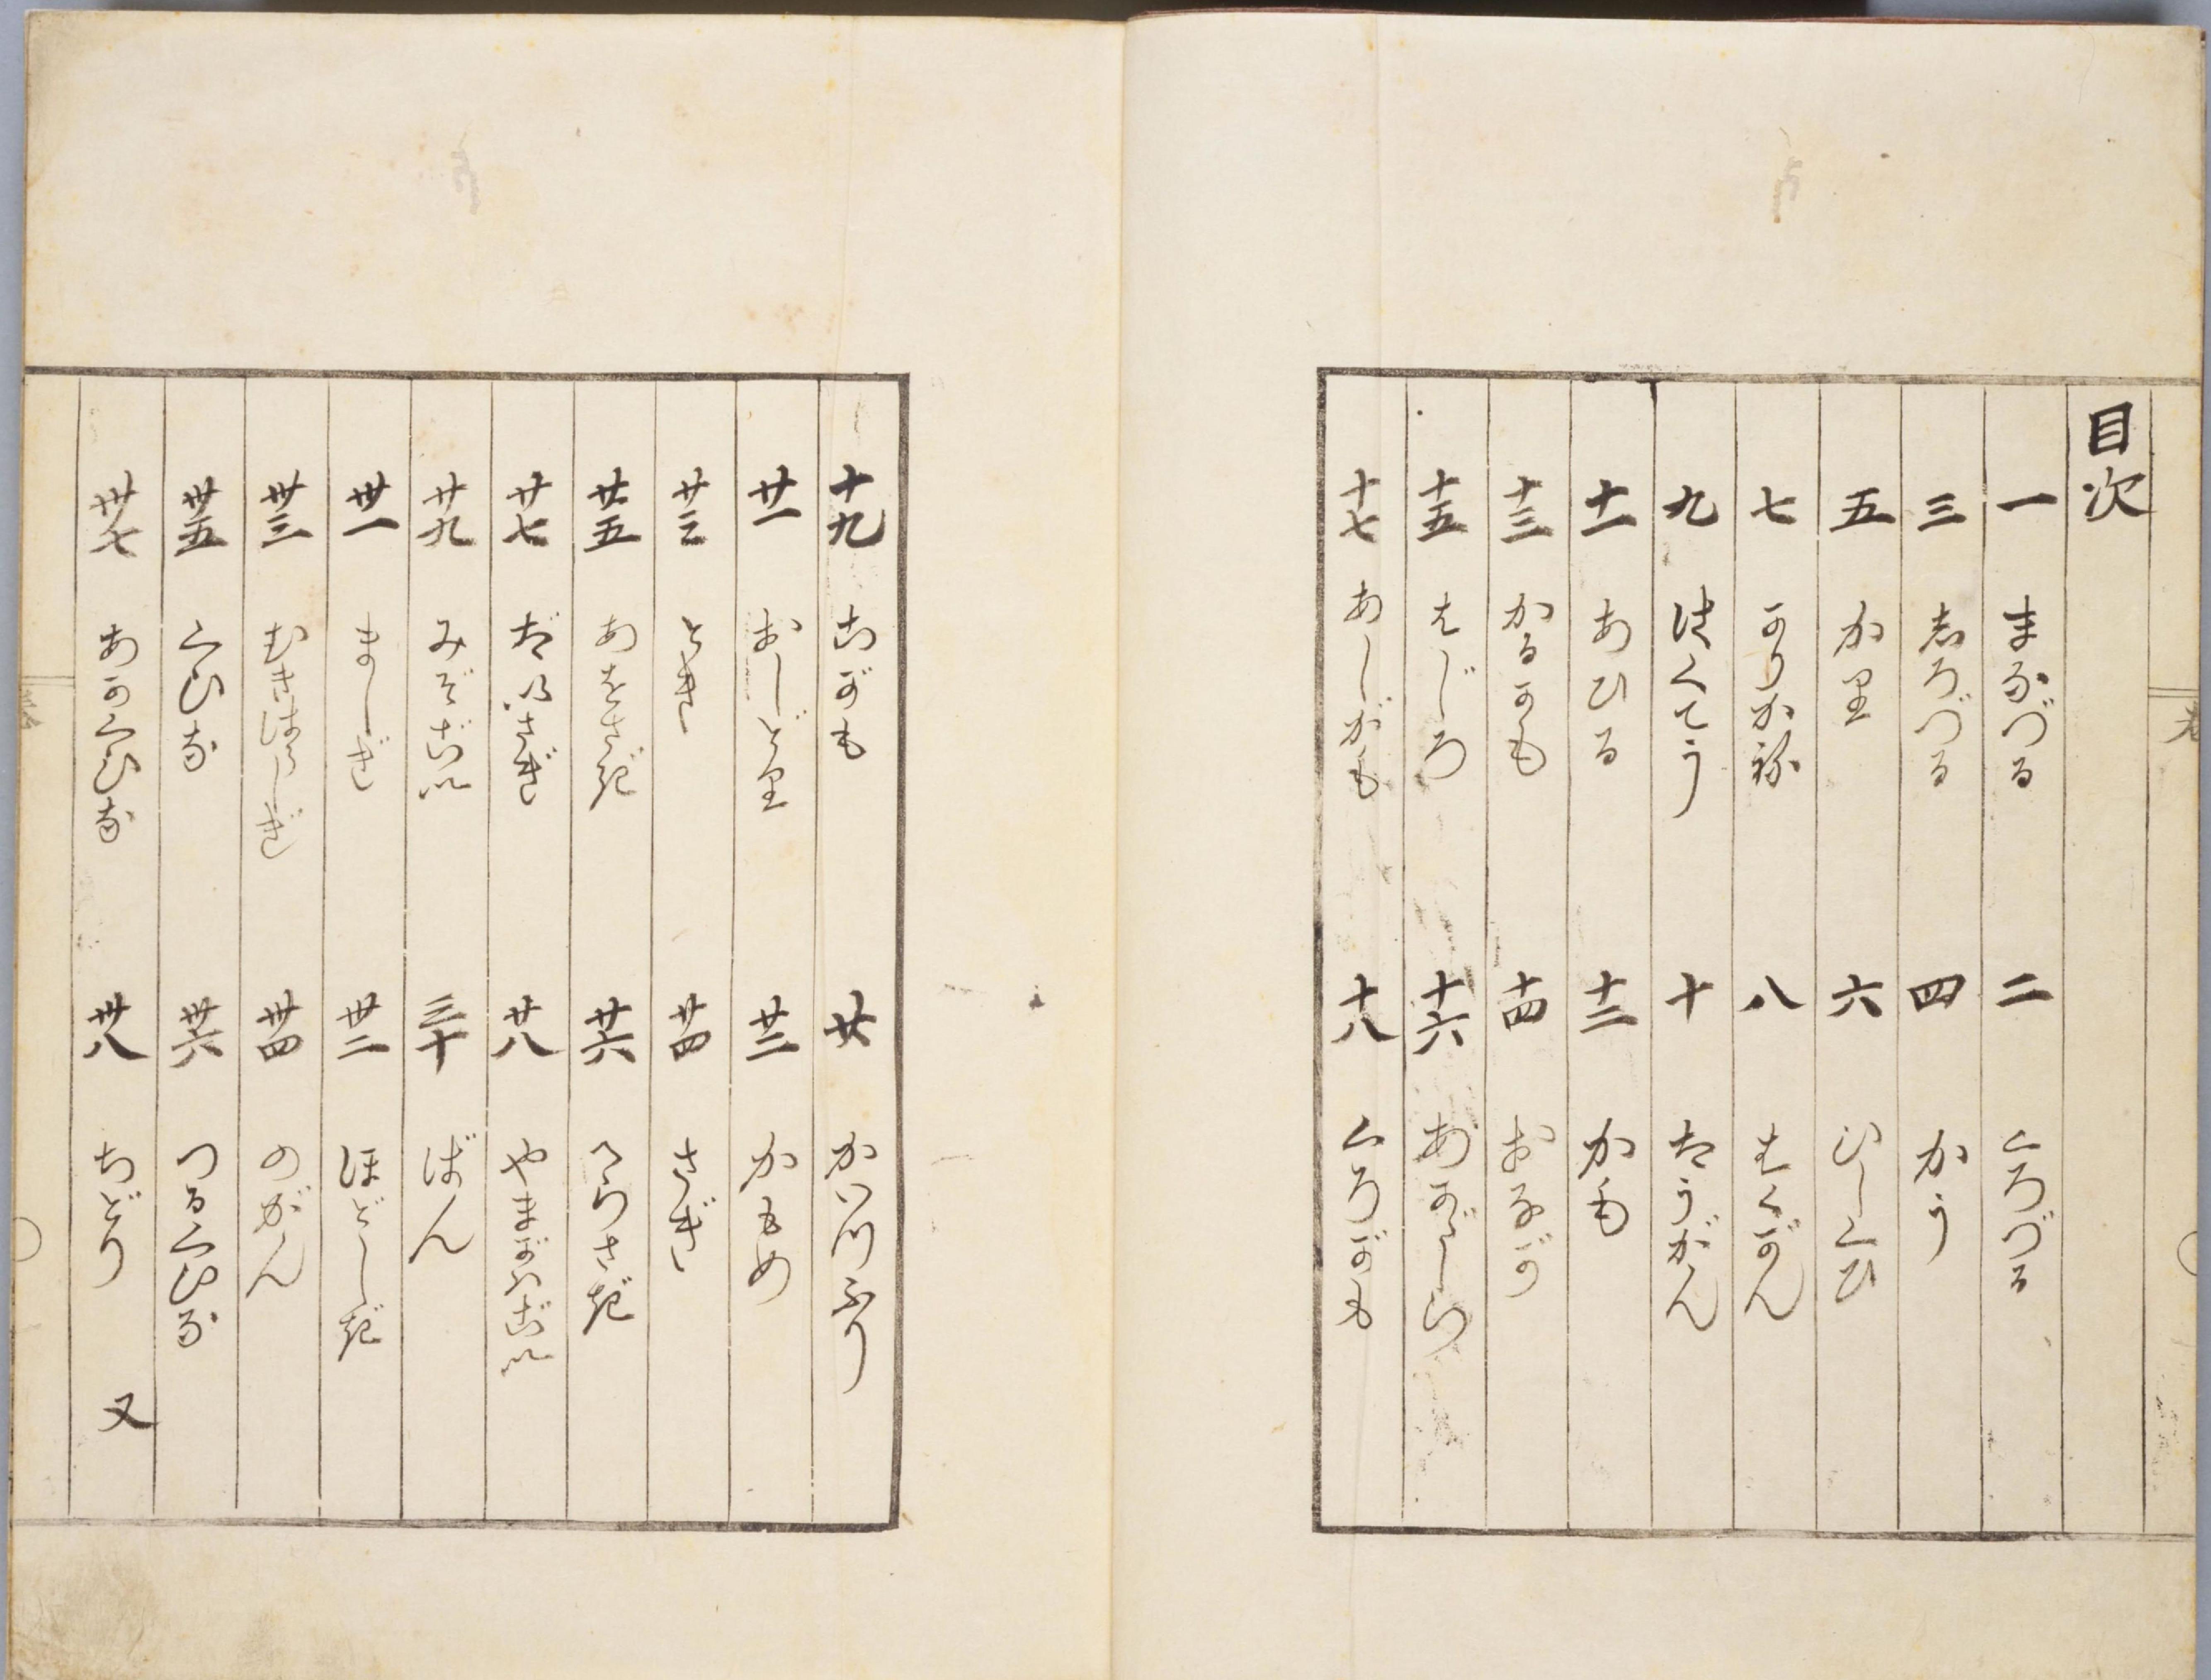 目次
一 まなづる 二 くろづる
三 志ろづる 四 かう
五 かり 六 ひしくひ
七 かりかね 八 はくがん
九 はくてう 十 たうがん
十一 あひる 十二 かも
十三 かるかも 十四 おなが
十五 はじろ 十六 あかゞしら
十七 あしがも 十八 くろがも
十九 こがも 廿 かいつふり
廿一 おしどり 廿二 かもめ
廿三 とき 廿四 さぎ
廿五 あをさぎ 廿六 へらさぎ
廿七 だいさぎ 廿八 やまがはごい
廿九 みぞごい 三十 ばん
卅一 ましぎ 卅二 ほどしぎ
卅三 むきはらしぎ 卅四 のがん
卅五 くひな 卅六 つるくひな
卅七 あかくひな 卅八 ちどり 又